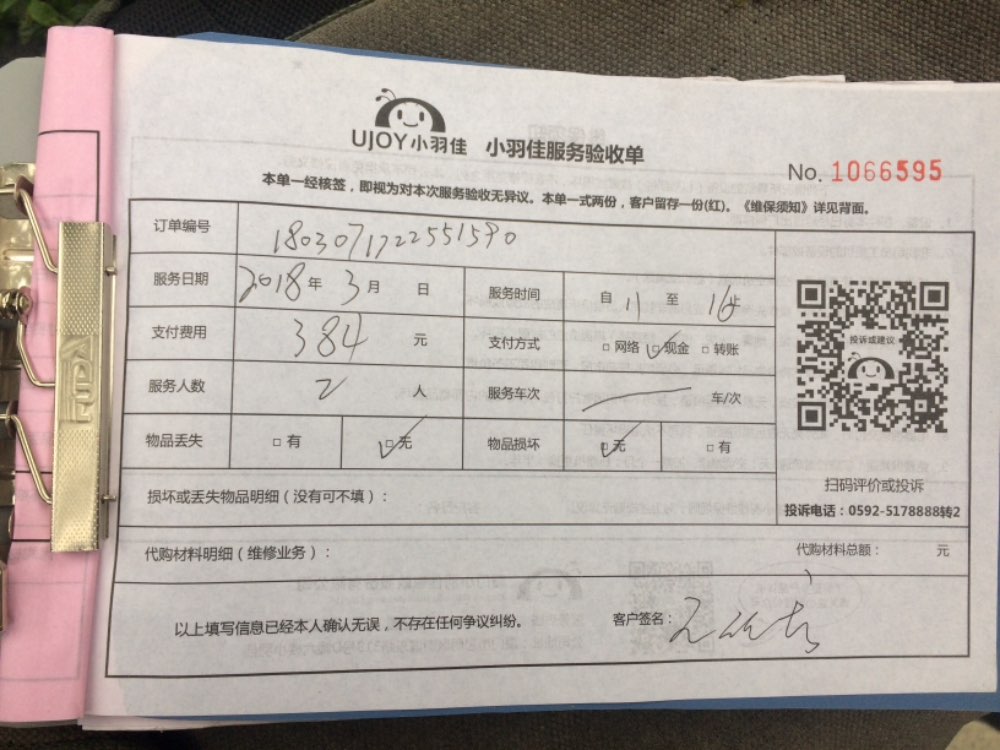 UJOY小羽佳 小羽佳服务验收单
No. 1066595
本单一经核签，即视为对本次服务验收无异议。本单一式两份，客户留存一份(红)。《维保须知》详见背面。
订单编号 1803071722551590
服务日期 2018年 3月 日 服务时间 自 11 至 16
支付费用 384 元 支付方式 □网络 □✓现金 □转账
服务人数 2 人 服务车次 — 车/次
物品丢失 □有 □✓无 物品损坏 □✓无 □有
投诉或建议
扫码评价或投诉
投诉电话：0592-5178888转2
损坏或丢失物品明细（没有可不填）：
代购材料明细（维修业务）： 代购材料总额： 元
以上填写信息已经本人确认无误，不存在任何争议纠纷。 客户签名：